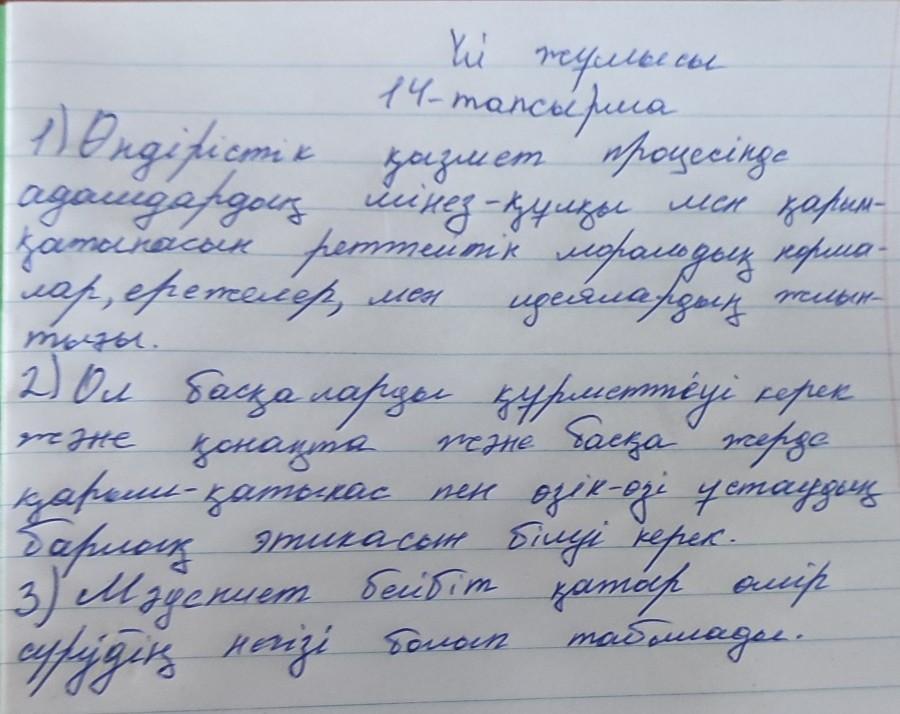 Үй жұмысы
14-тапсырма
1) Өндірістік қазмет процесінде
адамдардың мінез-құлқы мен қарым-
қатынасын реттейтік моральдың норма-
лар, ережелер, мен идеялардың жиын-
тығы.
2) Ол басқаларды құрметтеуі керек
және қонақта және басқа жерде
қарым-қатынас пен өзік-өзі ұстаудың
барлық этикасын білуі керек.
3) Мәдениет бейбіт қатар өмір
сүрудің негізі болып табылады.